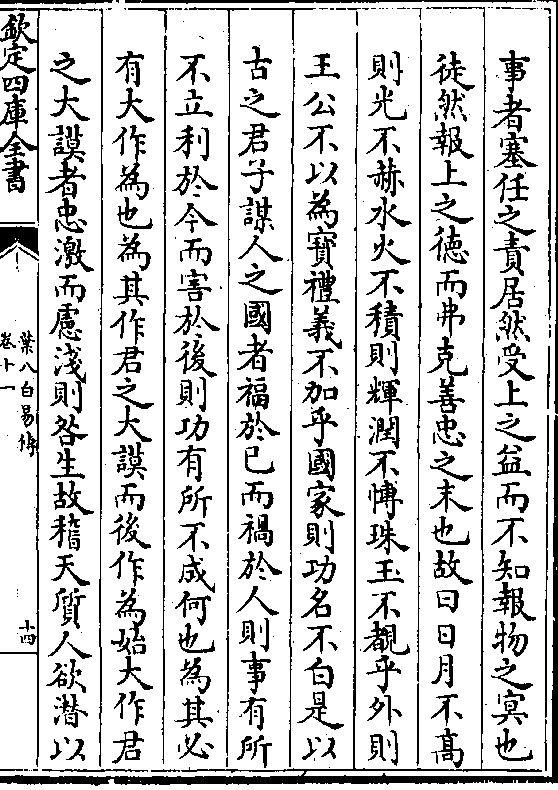 事者塞任之責居然受上之益而不知報物之㝠也
徒然報上之徳而弗克善忠之末也故曰日月不髙
則光不赫水火不積則輝潤不愽珠玉不覩乎外則
王公不以為寳禮義不加乎國家則功名不白是以
古之君子謀人之國者福於已而禍於人則事有所
不立利於今而害於後則功有所不成何也為其必
有大作為也為其作君之大謨而後作為始大作君
之大謨者忠激而慮淺則咎生故稽天質人欲潜以
欽定四庫全書
葉八白易傳
卷十一
十四